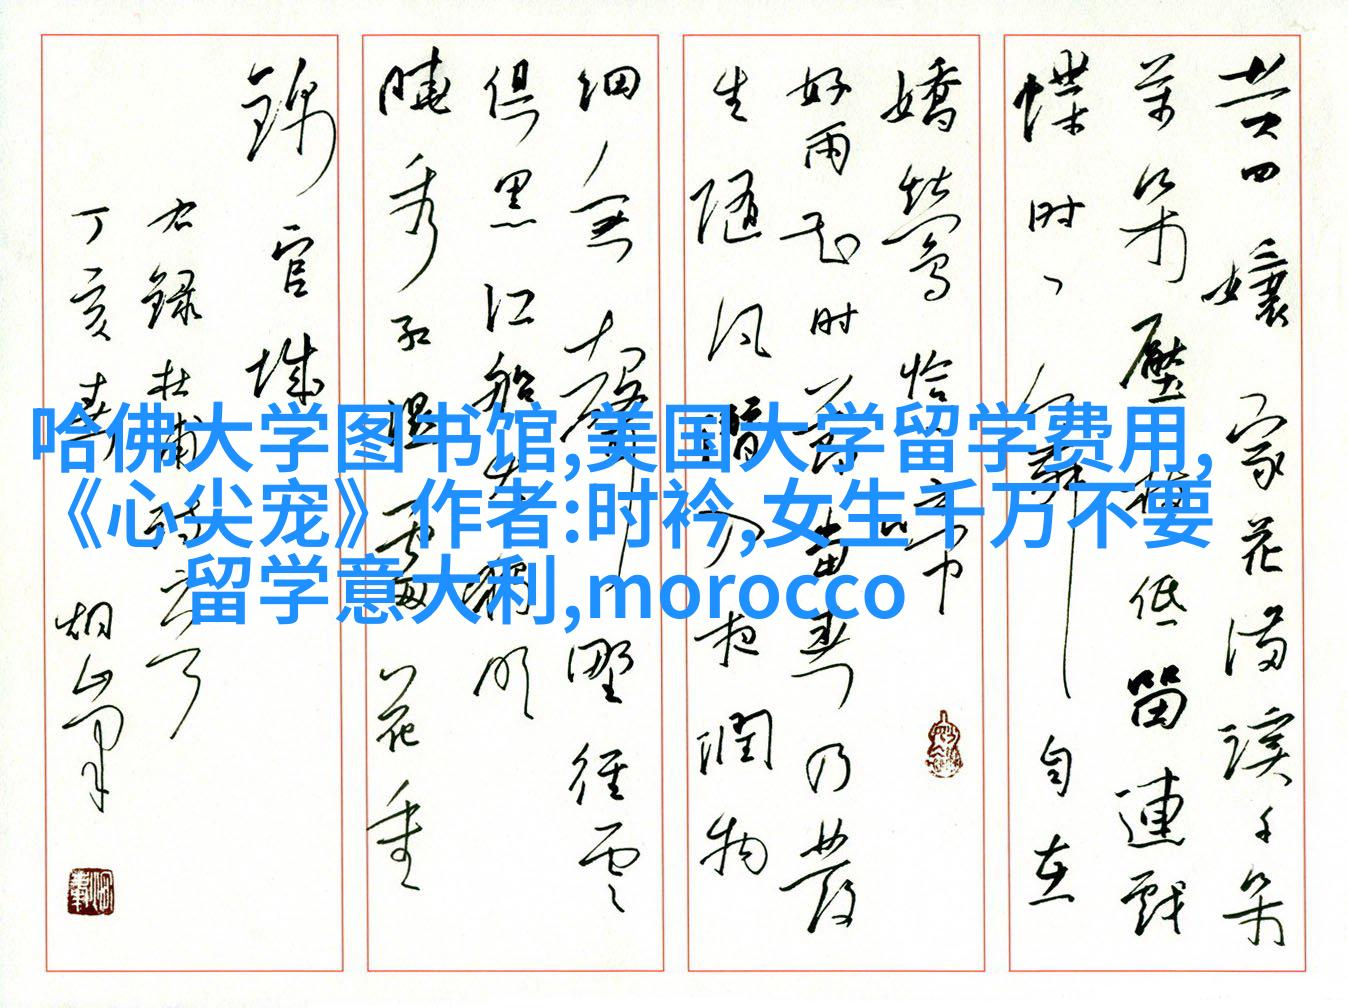 黄四娘家花满溪千朵
万朵压枝低留连戏
蝶时时
自在
娇莺恰恰啼
好雨知时节当春乃发
生随风潜入夜润物
细无声野径云
俱黑江船火独明
晓看红湿处花重
锦官城
右录杜甫诗
丁亥春
哈佛大学图书馆,美国大学留学费用,
《心尖宠》作者:时衿,女生千万不要
留学意大利,morocco